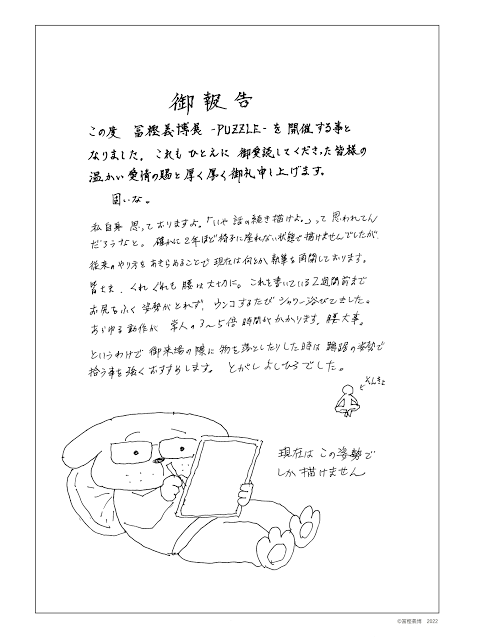 御報告
この度 冨樫義博展 -PUZZLE- を開催する事と
なりました。これもひとえに 御愛読してくださった皆様の
温かい愛情の賜と厚く厚く御礼申し上げます。
固いな。
私自身 思っておりますよ。「いや 話の続き描けよ。」って思われてん
だろうなと。確かに2年ほど椅子に座れない状態で描けませんでしたが
従来のやり方をあきらめることで現在は何とか執筆を再開しております。
皆さま、くれぐれも腰は大切に。これを書いている2週間前まで
お尻もふく姿勢がとれず、ウンコするたびシャワー浴びてました。
あらゆる動作が 常人の3〜5倍時間がかかります。腰大事。
というわけで御来場の際に物を落としたりした時は 蹲踞の姿勢で
拾う事を強くおすすめします。とがし よしひろでした。
そんきょ
現在は この姿勢で
しか描けません
©冨樫義博 2022